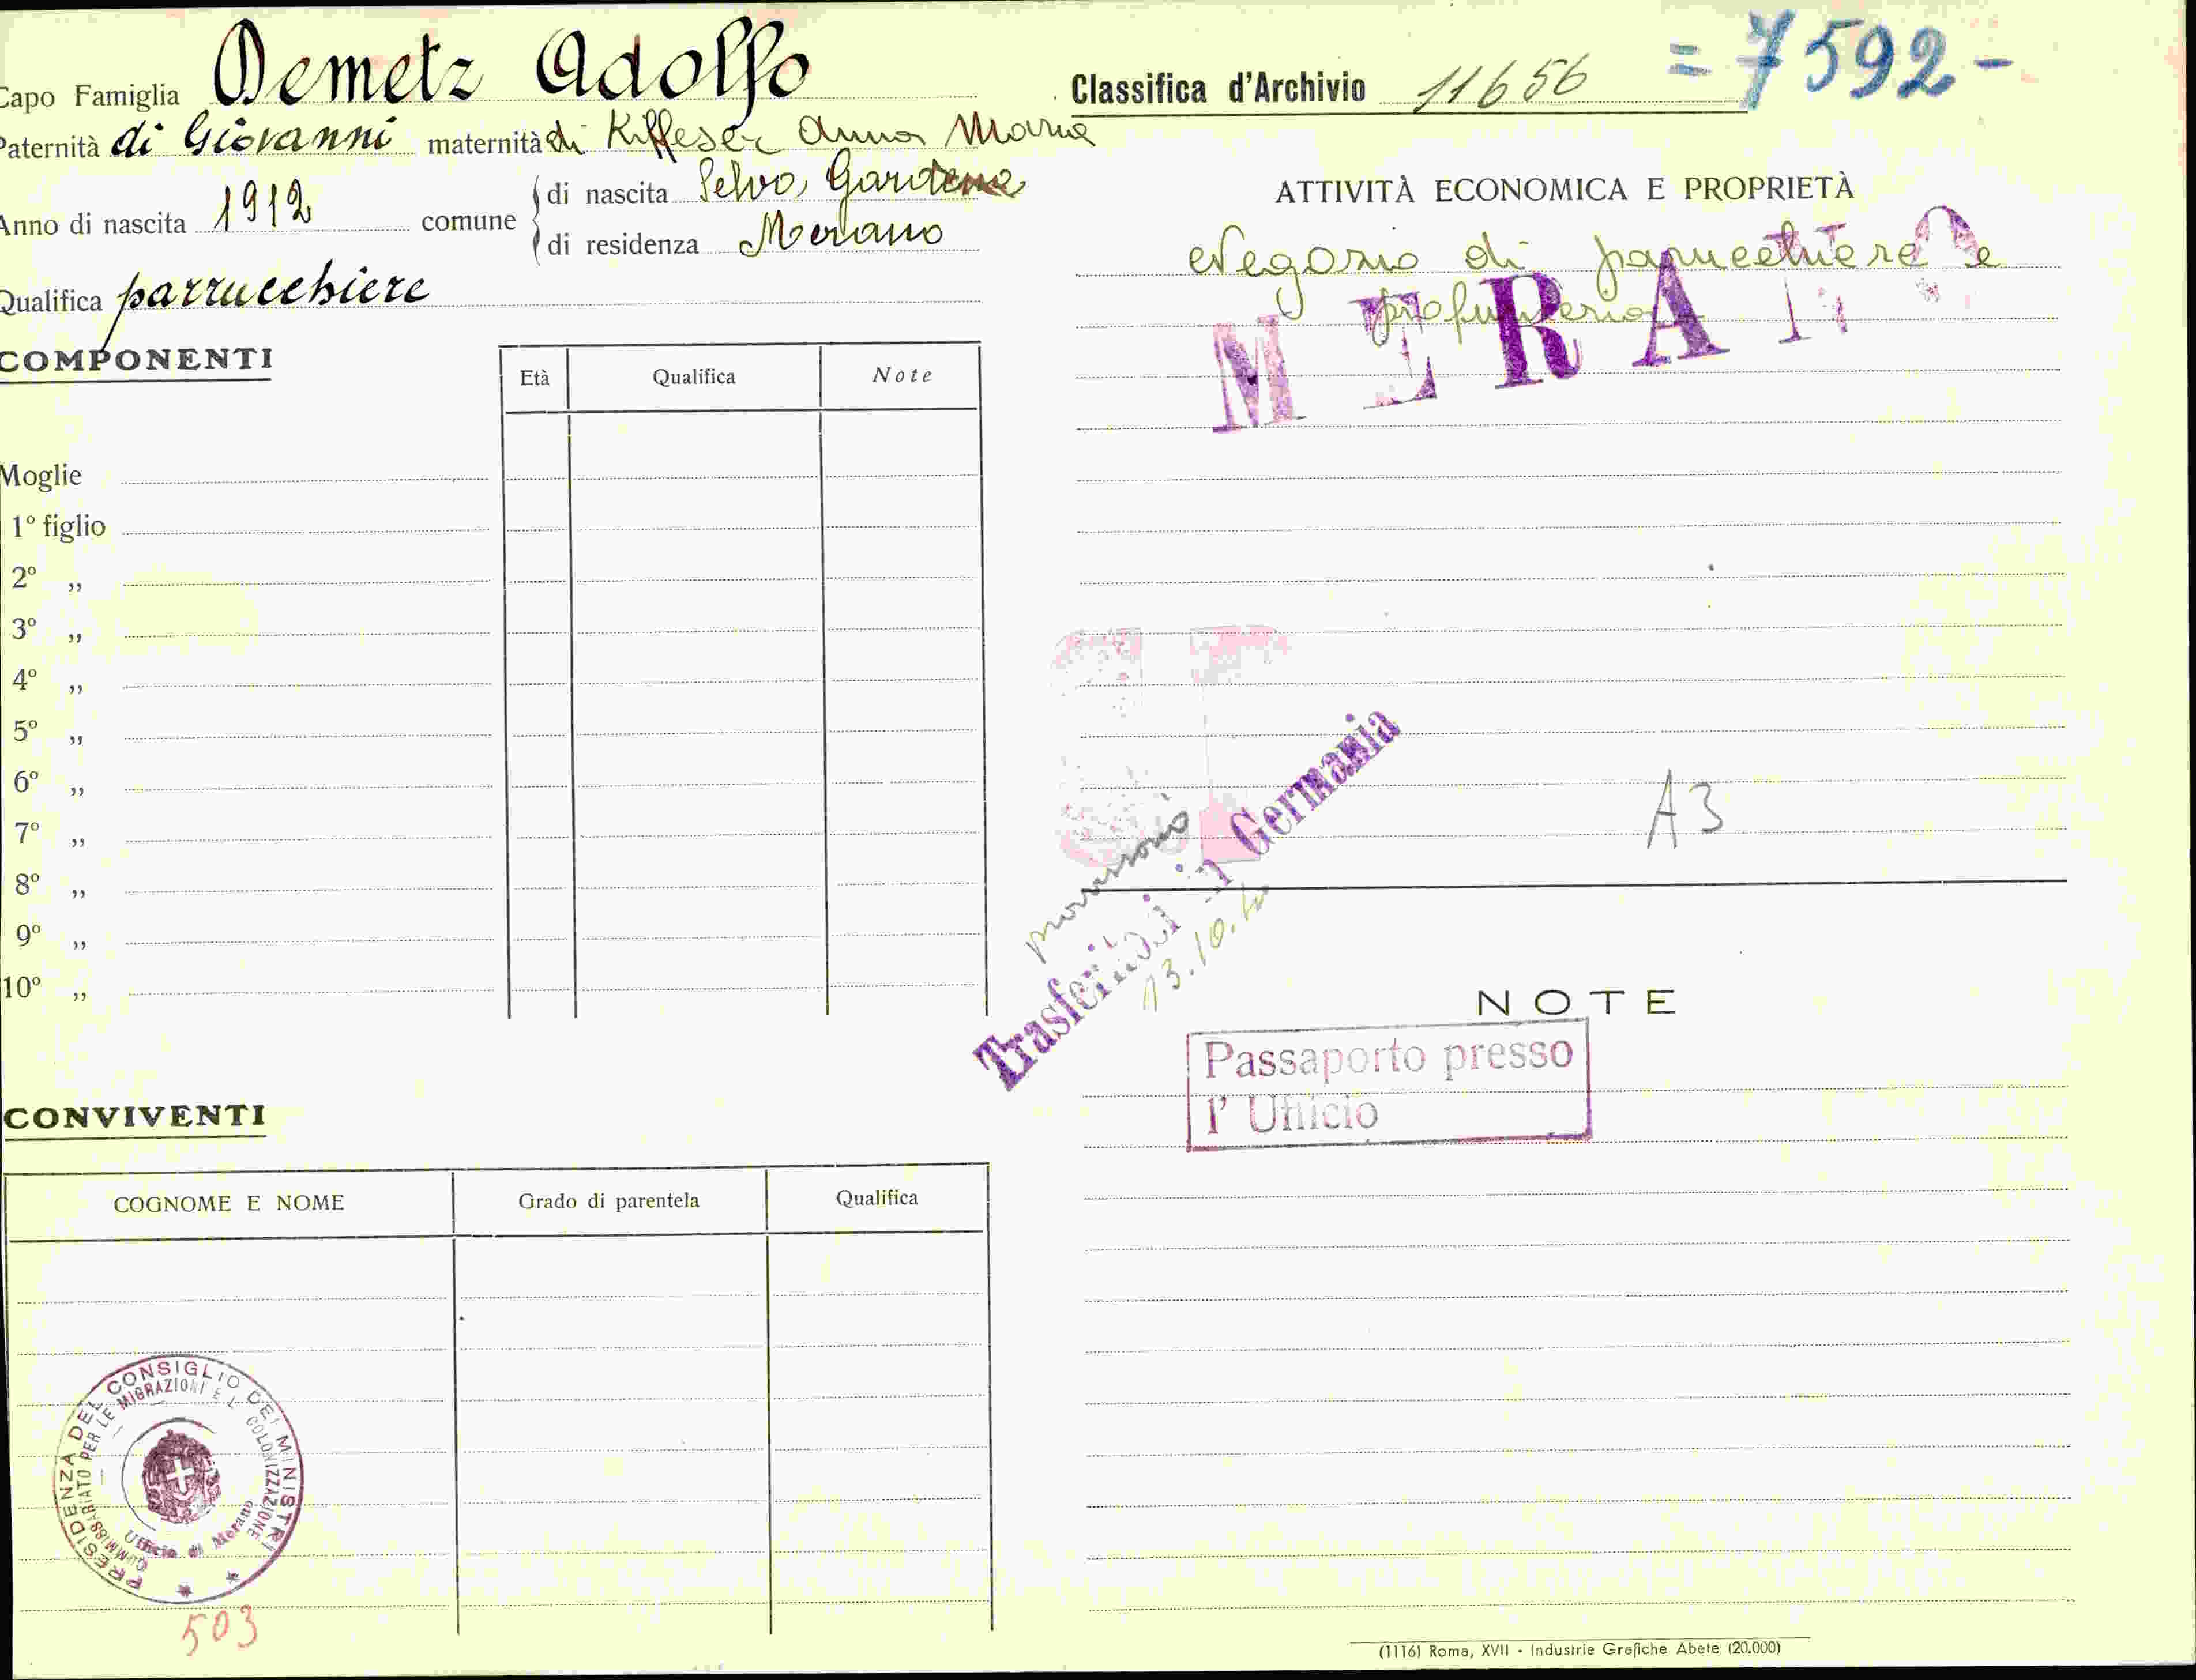 Capo Famiglia Demetz Adolfo
Paternità di Giovanni maternità di Kiffeser Anna Maria
Anno di nascita 1912 comune
di nascita Selva, Gardena
di residenza Merano
Qualifica parrucchiere
COMPONENTI
Età Qualifica Note
Moglie
1º figlio
2º ,,
3º ,,
4º ,,
5º ,,
6º ,,
7º ,,
8º ,,
9º ,,
10º ,,
CONVIVENTI
COGNOME E NOME Grado di parentela Qualifica
PRESIDENZA DEL CONSIGLIO DEI MINISTRI
COMMISSARIATO PER LE MIGRAZIONI E L COLONIZZAZIONE
Ufficio di Merano
503
Classifica d'Archivio 11656 = 7592 -
ATTIVITÀ ECONOMICA E PROPRIETÀ
Negozio di parrucchiere e
profumeria
MERANO
A3
in Germania
13.10.
NOTE
Passaporto presso
l' Ufficio
(1116) Roma, XVII - Industrie Grafiche Abete (20.000)